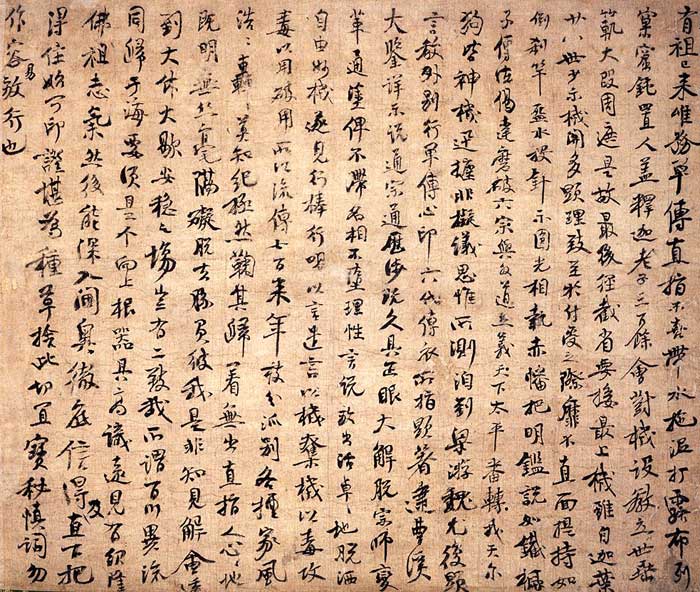 有祖已來唯務單傳直指不喜帶水拖泥打露布列
窠窟鈍置人蓋釋迦老子三百餘會對機設教立世垂
範大段周遮是故最後徑截省要接最上機雖自迦葉
廿八世少示機關多顯理致至於付受之際靡不直面提持如
倒剎竿盋水投針示圓光相執赤幡把明鑑說如鐵橛
子傳法偈達磨破六宗與外道立義天下太平番轉我天尔
狗皆神機迅捷非擬議思惟所測洎到梁游魏尤復顯
言教外別行單傳心印六代傳衣所指顯著逮曹溪
大鑒詳示說通宗通歷涉既久具正眼大解脫宗師變
革通塗俾不滯名相不墮理性言說放出活卓々地脫洒
自由妙機遂見行棒行喝以言遣言以機奪機以毒攻
毒以用破用所以流傳七百來年枝分派別各擅家風
浩々轟々莫知紀極然鞠其歸著無出直指人心々地
既明無絲毫隔礙脫去勝負彼我是非知見解會透
到大休大歇安穩之場豈有二致哉所謂百川異流
同歸于海要須是个向上根器具高識遠見有紹隆
佛祖志氣然後能深入閫奧徹底信得及直下把
得住始可印證堪為種草捨此切宜寶秘慎詞勿
作容易放行也